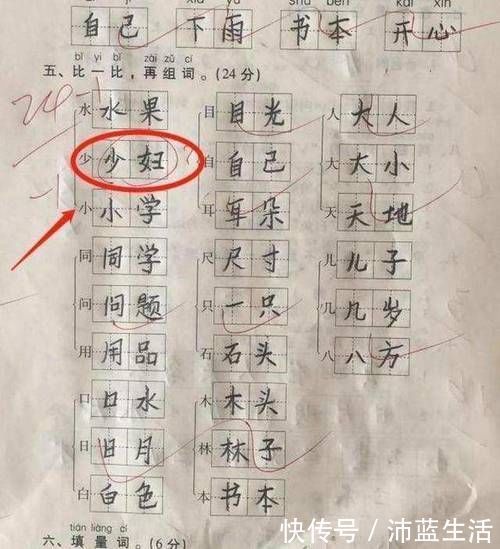 xià yǔ shū běn kāi xīn
自己 下雨 书本 开心
bǐ yì bǐ zài zǔ cí
五、比一比,再组词。(24分)
24-1
水 水果 目 目光 人 大人
少 少妇 自 自己 大 大小
-1
小 小学 耳 耳朵 天 天地
同 同学 尺 尺寸 儿 儿子
问 问题 只 一只 几 几岁
用 用品 石 石头 八 八方
口 口水 木 木头
日 旧月 林 林子
白 白色 本 书本
tián liàng cí
六、填量词。(6分)
快传号/沛蓝生活